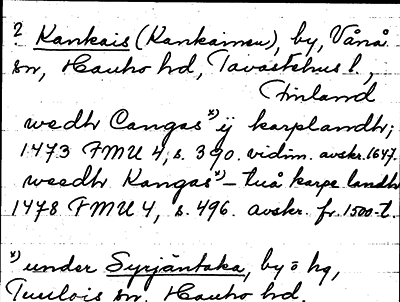 ? Kankais (Kankainen), by, Vånå
sn, Hauho hd, Tavastehus l.,
Finland
wedh Cangas x) ij karplandh;
1473 FMU 4, s. 390. vidim. avskr. 1647.
weedh Kangas x) – tuå karpe landh
1478 FMU 4, s. 496. avskr. fr. 1500-t.
x) under Syrjäntaka, by o hg,
Tuulois sn, Hauho hd.